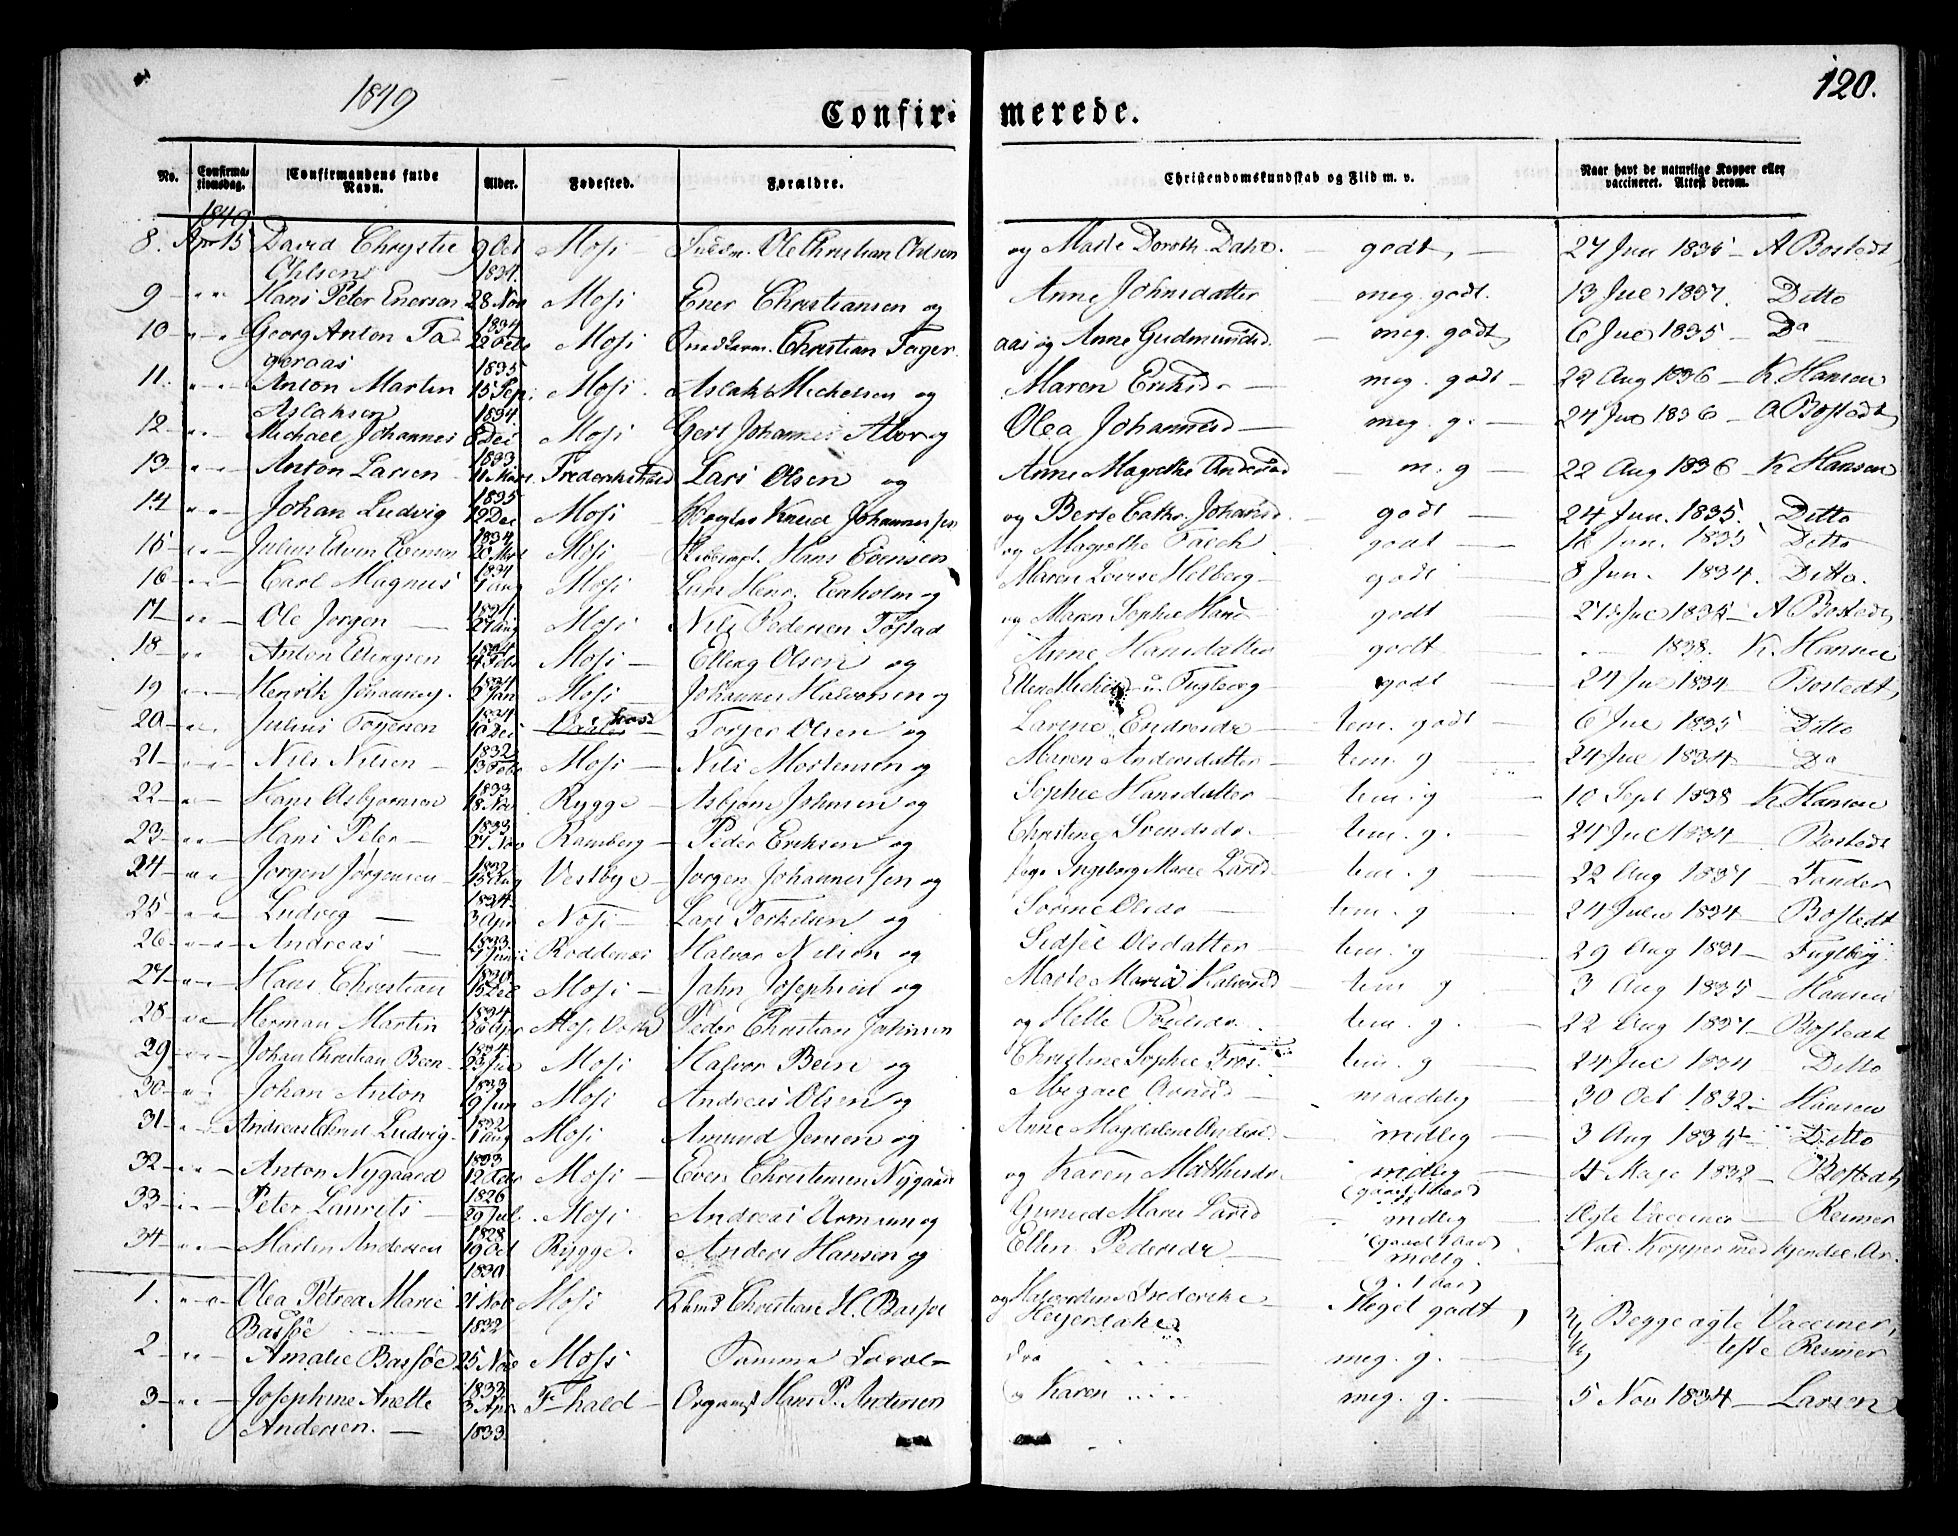 1849
120.
Confir- merede.
No. Confirmationsdag. Confirmandens fulde Navn. Alder. Fødested. Forældre. Christendomskundskab og Flid m. v. Naar havt de naturlige Kopper eller vaccineret. Attest derom.
1849
8. Apr 15 David Chrystie 9 Oct Moss Ole Christian Ohlsen og Marte Doroth. godt 27 Jun 1835 A Bostedt
Ohlsen 1834
9 " " Hans Peter Enersen 28 Nov Moss Ener Christiansen og Anne Johnsdatter meg. godt. 13 Jul 1837. Ditto
1834
10 " " Georg Anton Fa 22 Feb Moss Christian Fager aas og Anne Gudmundsd. meg. godt 6 Jul 1835 Do
geraas 1835
11. " " Anton Martin 15 Sep. Moss Aslak Michelsen og Maren Eriksd. meg. godt 22 Aug 1836 K. Hansen
Aslaksen 1834
12 " " Michael Johannes 8 Dec Moss Gert Johannes og Olea Johannesd meg. g. 24 1836 A Bostedt
1833
13 " " Anton Larsen 11 Mars Frederikshald Lars Olsen og Anne Magrethe Andersd m. g 22 Aug 1836 K Hansen
1835
14 " " Johan Ludvig 12 Dec Moss Knud Johannessen og Berte Cathr. Johansd. godt 24 Jun. 1835. Ditto
1834
15 " " Julius Edvin Evensen Moss Hans Evensen og Magrethe Falch godt Jun. 1835 Ditto
1834
16 " " Carl Magnus 1 Aug Moss Lars Henr. Eenholm og Maren Lovise Holberg godt 8 Jun. 1834. Ditto.
1834
17 " " Ole Jørgen 27 Aug Moss Nils Pedersen Tofstad og Maren Sophie Hansd godt 27 Jul 1835 A Bostedt
1834
18 " " Anton Ellingsen 4 Feb Moss Elling Olsen og Anne Hansdatter godt 1838. K. Hansen
1834
19 " " Henrik Johannes. Jan Moss Johannes Halvorsen og Ellen Fugleberg godt 24 Jul 1834 Bostedt
1834
20 " " Julius Torjersen 10 Dec Torjer Olsen og Larine Endresdr tem. godt 6 Jul 1835 Ditto
1832
21 " " Nils Nilsen 13 Feb Moss Nils Mortensen og Maren Andersdatter tem. g 24 Jul 1834 Do
1833
22 " " Hans Asbjørnsen 18 Nov Rygge Asbjørn Johnsen og Sophie Hansdatter tem. g 10 Sept 1838 K. Hansen
1833
23 " " Hans Peter 27 Nov Ramberg Peder Eriksen og Christine Svendsdr. tem. g. 24 Jul 1834 Bostedt
1832
24 " " Jørgen Jørgensen 15 Aug Vestbye Jørgen Johannessen og Ingeborg Marie Larsd tem. g 22 Aug 1837 Fander
1834.
25 " " Ludvig 3 Apr Moss Lars Torkelsen og Sorine Olsdr tem. g 24 Julii 1834 Bostedt
1833
26 " " Andreas Junii Roddenæs Halvor Nilsen og Sidsel Olsdatter tem. g 29 Aug 1831 Fuglberg
1830
27 " " Hans Christian 15 Dec Moss Jahn Josephsen og Marte Maria Halvorsd tem g 3 Aug 1835 Hansen
1834
28 " " Herman Martin 30 Apr Moss Peder Christian Johnsen og Helle tem. g. 22 Aug 1837 Bostedt
1834
29 " " Johan Christian Been 23 Jul Moss Halvor Bein og Christine Sophie tem. g 24 Jul 1834 Ditto
1833
30 " " Johan Anton 9 Jun Moss Andreas Olsen og Abegael maadelig 30 Oct 1832 Hansen
1832
31 " " Andreas Ludvig 1 Aug Moss Amund Jensen og Anne Magdalene midlig 3 Aug 1835 Ditto
1833
32 " " Anton Nygaard 12 Febr Moss Even Christensen Nygaard og Karen Mathisdr. midlig 4 Maje 1832 Bostedt
1826 (gaaet 1 aar)
33 " " Peter Laurits 29 Jul. Moss Andreas og Gunild Marie Larsd midlig Ægte Vacciner Reimer
1828 (gaaet 1 aar)
34 " " Martin Andersen 19 Oct Rygge. Anders Hansen og Ellen Pedersdr midlig. Nat. Kopper med kjendel. Ar.
1830. (g. 1 aar)
1. " " Olea Petrea Marie 21 Nov Moss Christian H. Bassøe og Frederike Meget godt Begge ægte Vacciner,
Bassøe 1832 Heyerdahl
2 " " Amalie Bassøe 25 Nov Moss Samme dto meg. g. teste Reimer
1833
3 " " Josephine Anette 3 Apr. F-hald Organist Hans P. Andersen og Karen .... meg. g. 5 Nov 1834 Larsen
Andersen. 1833